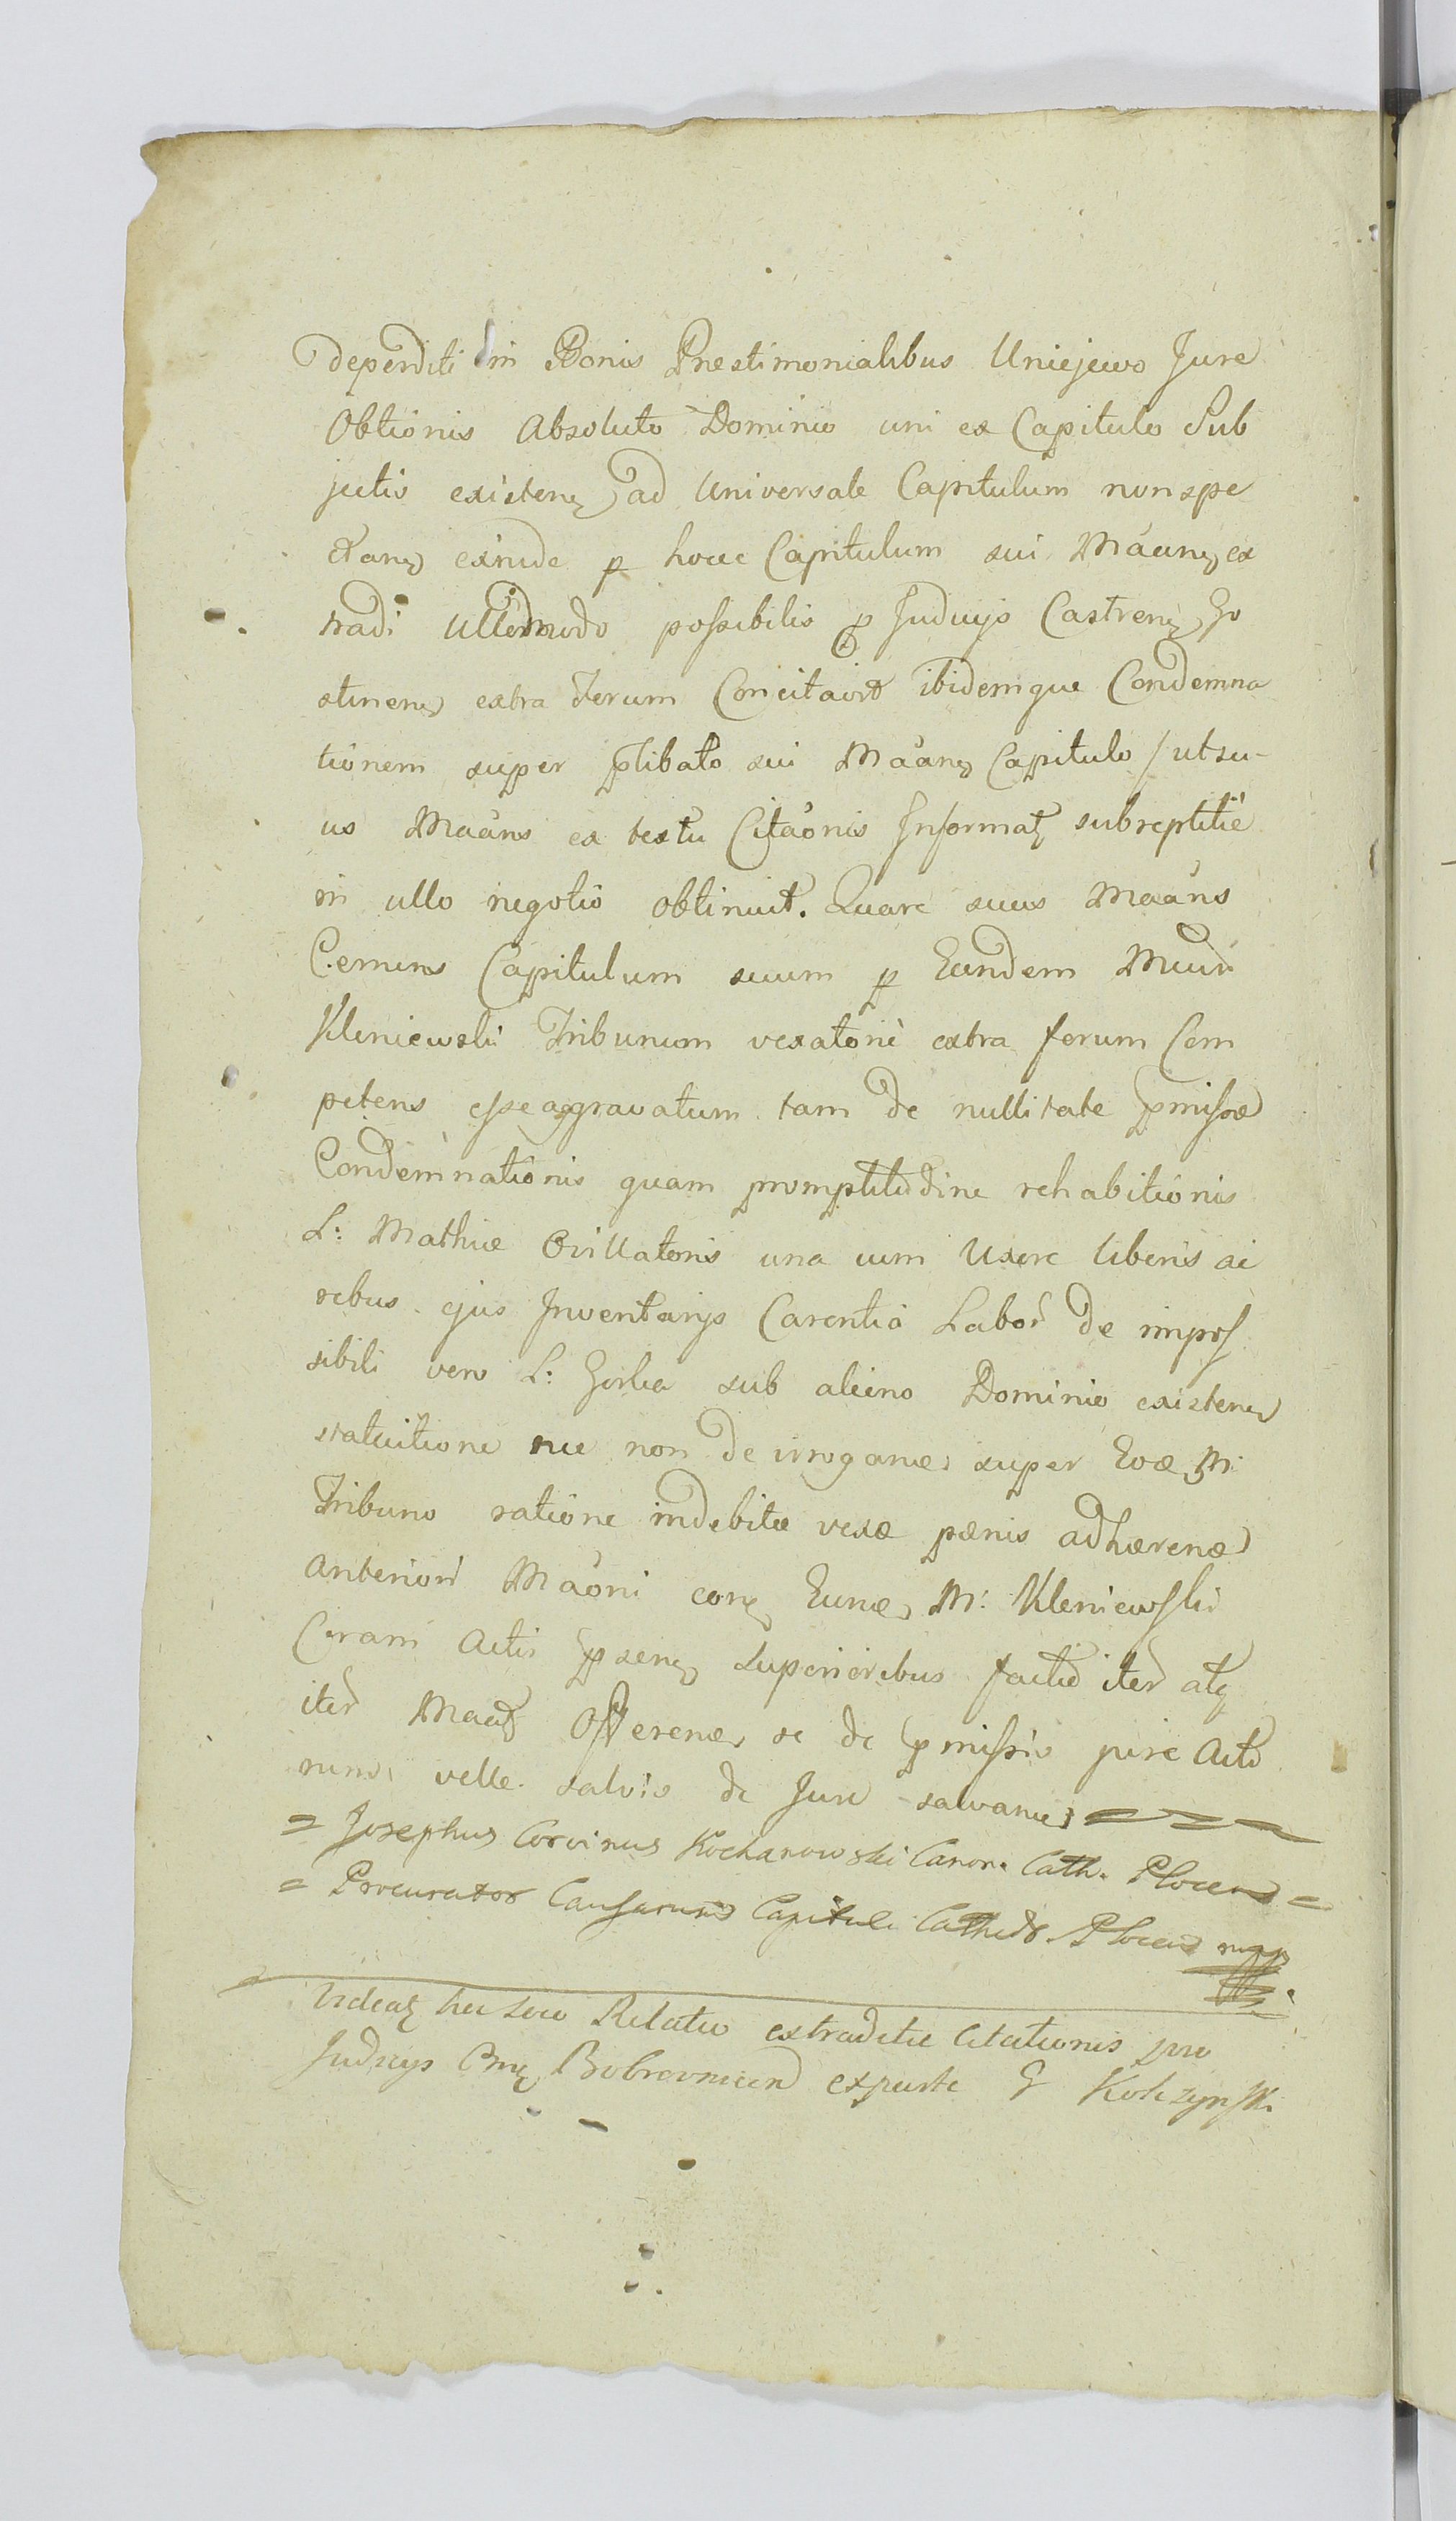 deperditi in Bonis Praestimonialibus Uniejewo Jure
Obtionis Absoluto Dominio uni ex Capitulo Sub
jectis existen ad Universale Capitulum non spe
ctan exinde p hocce Capitulum sui Maan ex
tradi Ullomodo possibilis p Judicijs Castren Go
stinen extra Forum Concitavit ibidemque Condemna
tionem super plibato sui Maan Capitulo / ut su-
us Maans ex textu Citaonis Informat subreptitie
in ullo negotio obtinuit. Quare suus Maans
Cernens Capitulum suum p Eundem
Kleniewski Tribunum vexatorie extra forum Com
petens esse aggravatum tam de nullitate pmissae
Condemnationis quam promptitudine rehabitionis
L: Mathiae Ovillatoris una cum Uxore liberis ac
rebus ejus Inventarijs Carentia Labor de impos
sibili vero L: Gorka sub alieno Dominio existen
statuitione nec non de irrogan super Eod M:
Tribuno ratione indebitae vexae paenis adhaeren
anteriori Maoni con Eund M: Kleniewski
Coram Actis psen Superioribus factae iter atq
iter Maat Offerend se de pmissis jure Acto
rum velle salvis de Jure salvan
= Josephus Corvinus Kochanowski Canon. Cath. Plocens =
= Procurator Causarum Capituli Cathedr. Plocens mpp
Videat hic loco Relatio extraditae Citationis pro
Judicijs Bobrovnicen exparte G Kolczynski